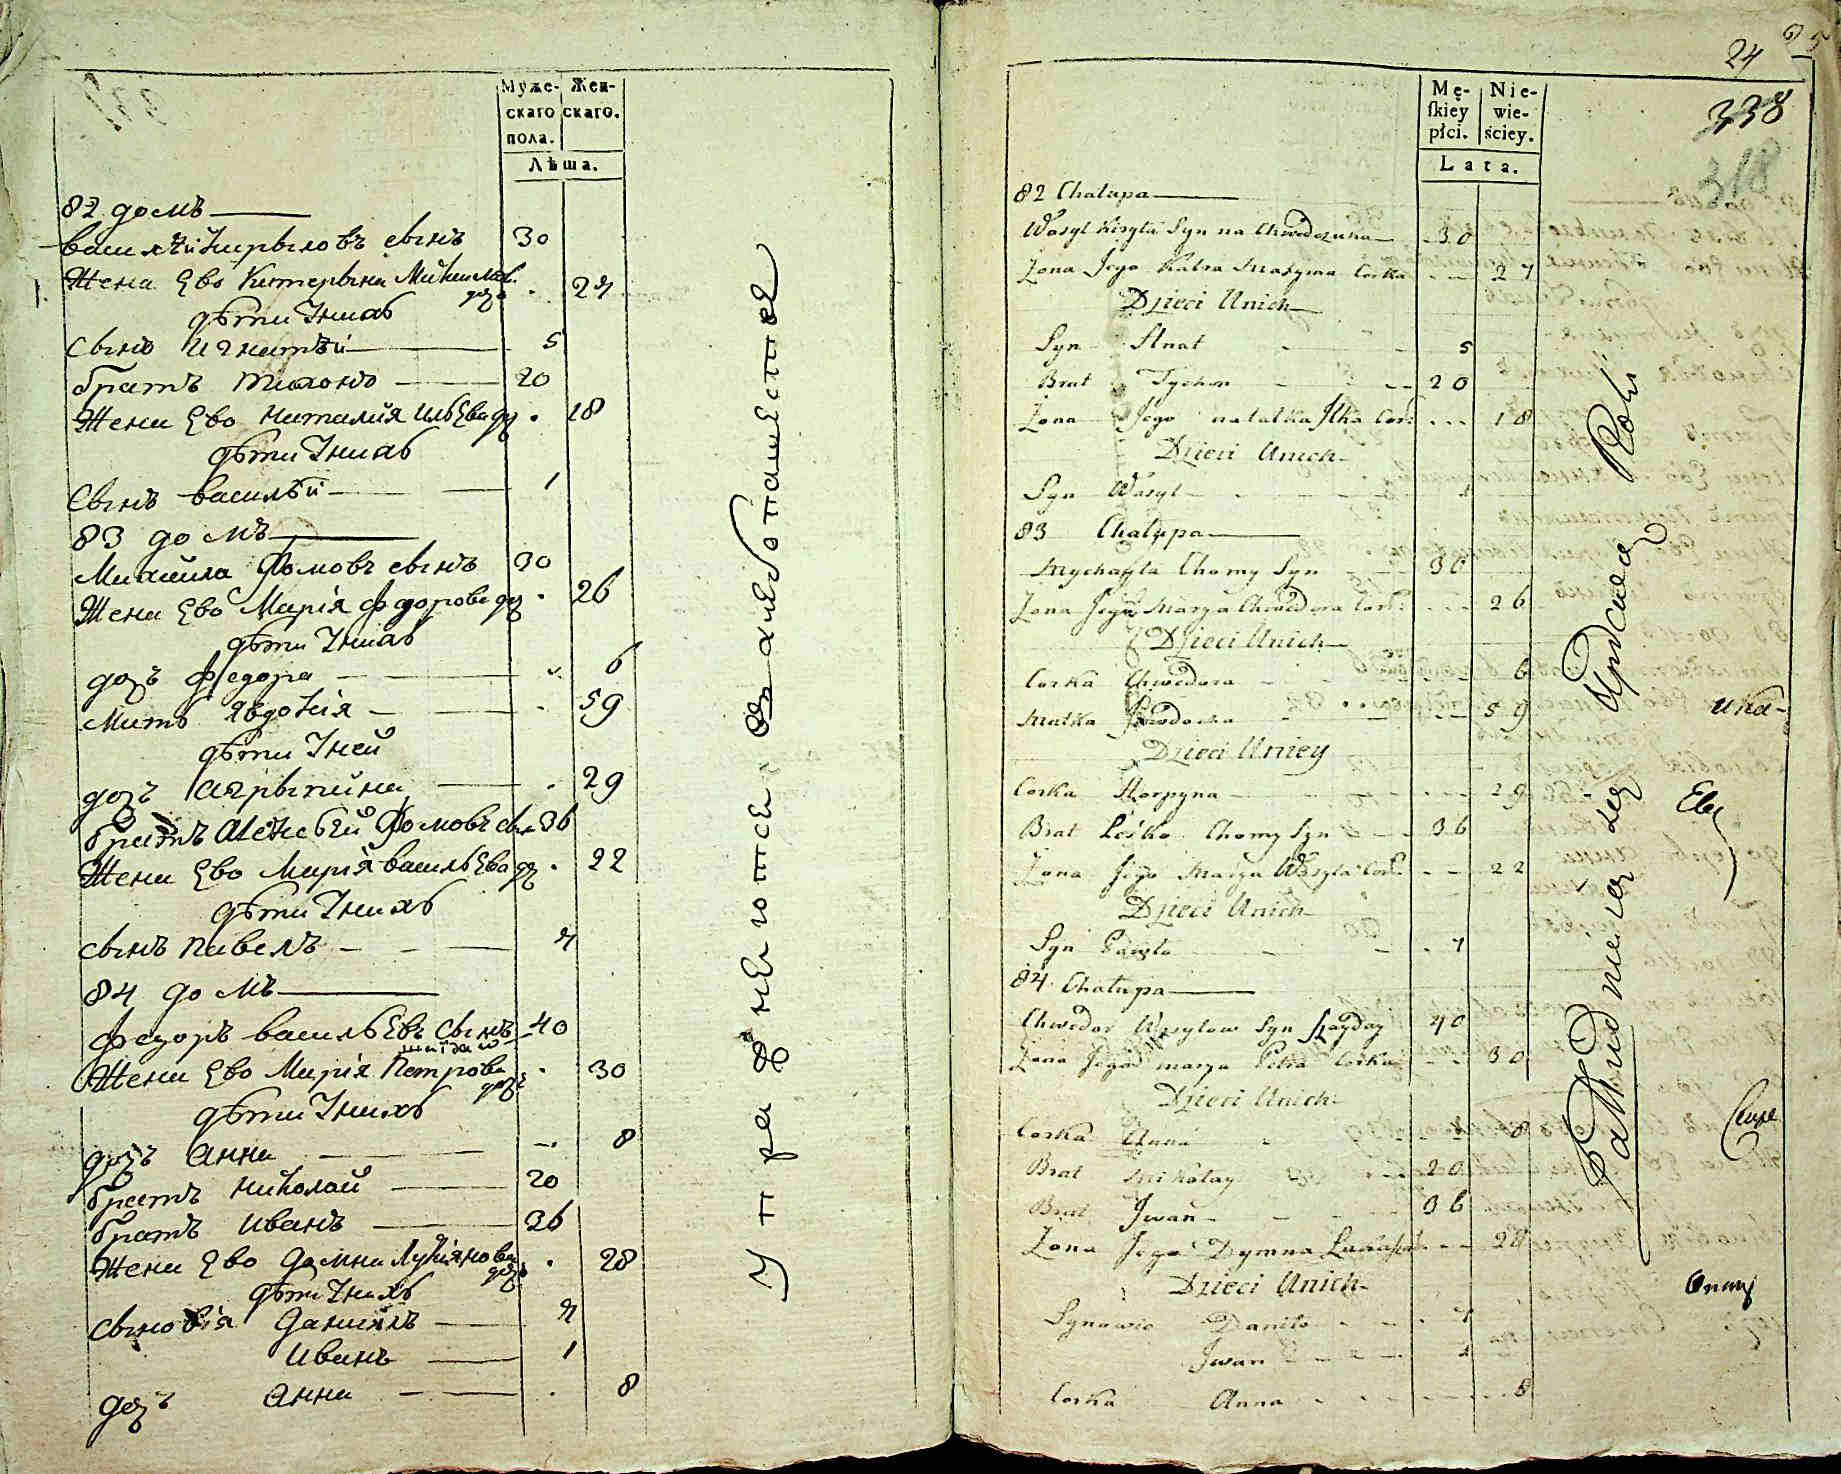 Муже-
скаго
пола.
Жен-
скаго.
Лѣта.
82 домъ
василѣй кирыловъ сынъ 30
Жена Ево Катерына Максимов. дочь 24
дѣти Унихъ
сынъ игнатѣй 5
братъ тихонъ 20
Жена Ево наталия илъЕва до 18
дѣти Унихъ
Сынъ василѣй 1
83 домъ
Михайла Фомовъ сынъ 30
Жена Ево Марiя Федорова до 26
дѣти Унихъ
дочъ федора 6
мать Явдокiя 59
дѣти Уней
дочъ агрыпина 29
братъ алеКсѣй Фомовъ сынъ 36
Жена Ево Марiя василъЕва до 22
дѣти Унихъ
сынъ павелъ 4
84 домъ
федоръ василъЕвъ сынъ 40
шайдай
Жена Ево Марiя Петрова дочъ 30
дѣти Унихъ
дочъ анна 8
братъ николай 20
братъ иванъ 36
Жена Ево домна Лукiянова дочъ 28
дѣти Унихъ
сыновiя данiилъ 4
иванъ 1
дочъ анна 8
24
338
318
Mę-
ſkiey
płci.
Nie-
wie-
ściey.
Lata.
82 Chałupa
Wasyl Kiryła Syn na Chwedczuka 30
Zona Jego Katra Maxyma Corka 24
Dzieci Unich
Syn Hnat 5
Brat Tychon 20
Zona Jego natalka Jlka Cor: 18
Dzieci Unich
Syn Wasyl 1
83 Chałupa
Mychayła Chomy Syn 30
Zona Jego Marya Chwedora Cork: 26
Dzieci Unich
Corka Chwedora 6
Matka Jawdocha 59
Dzieci Uniey
Corka Horpyna 29
Brat Leśko Chomy Syn 36
Zona Jego Marya Wasyla Cork: 22
Dzieci Unich
Syn Pawło 4
84 Chałupa
Chwedor Wasylow Syn Szayday 40
Zona Jego marya Petra Corka 30
Dzieci Unich
Corka Anna 8
Brat Mikołay 20
Brat Jwan 36
Zona Jego Dymna 28
Dzieci Unich
Synowie Daniło 4
Jwan 1
Corka Anna 8